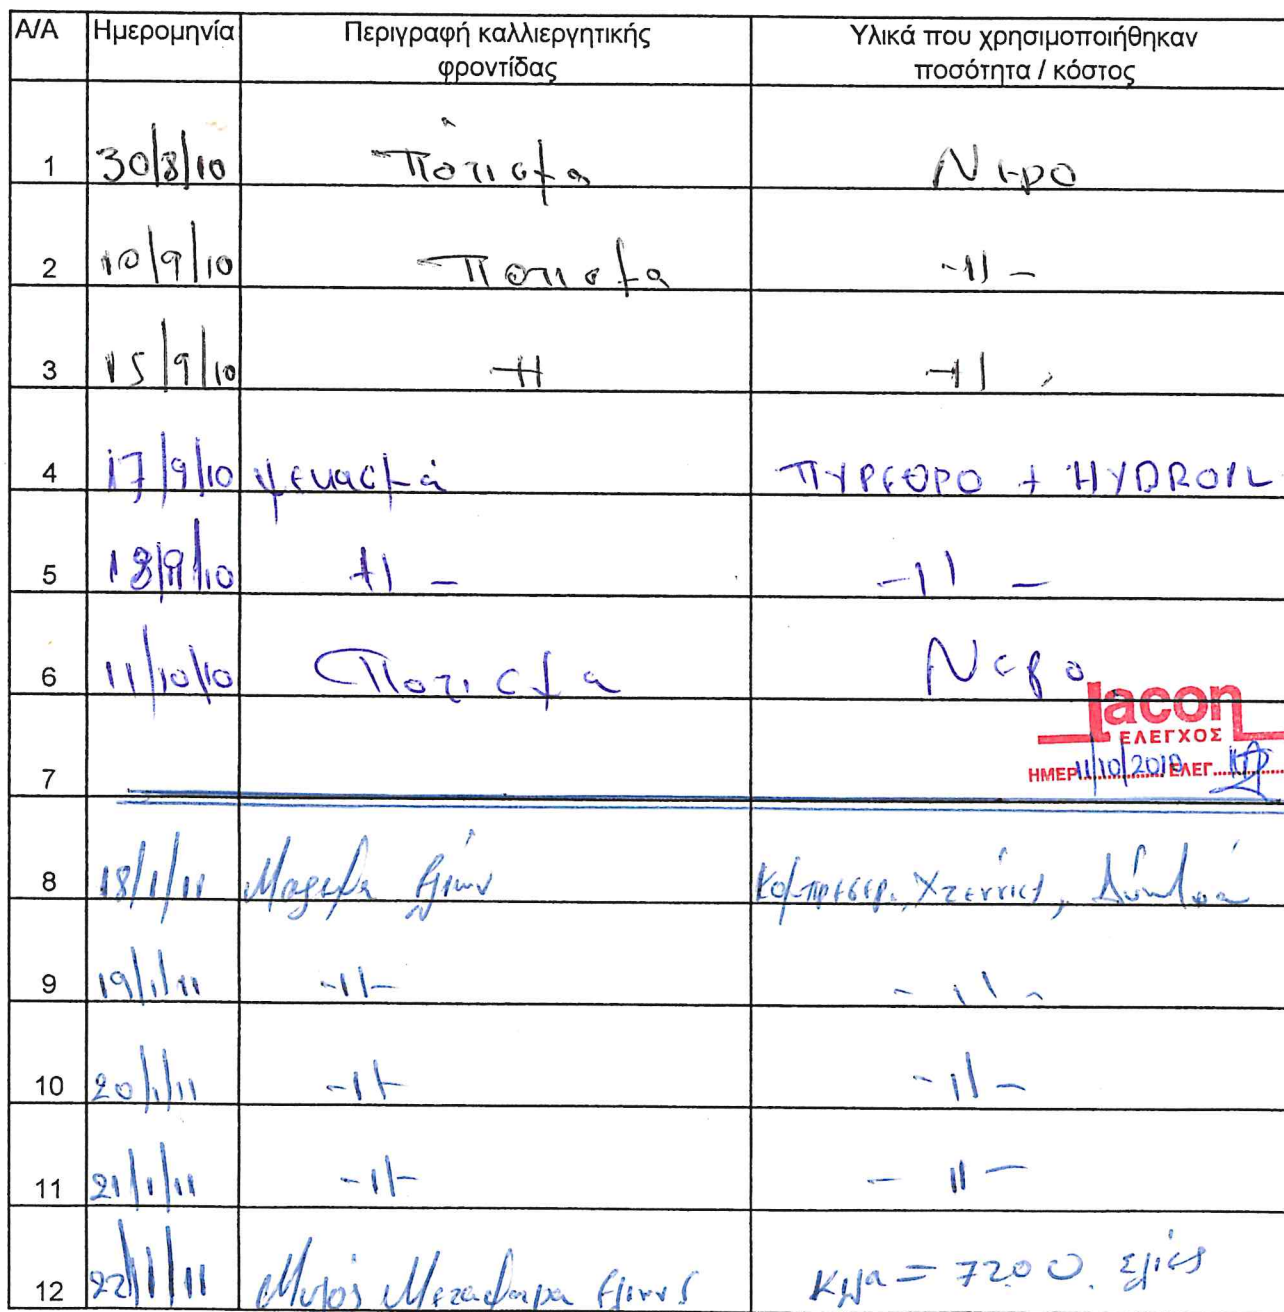 Α/Α Ημερομηνία Περιγραφή καλλιεργητικής φροντίδας Υλικά που χρησιμοποιήθηκαν ποσότητα / κόστος
1 30/8/10 Πότισμα Νερο
2 10/9/10 Ποτισμα -11-
3 15/9/10 -11 -11
4 17/9/10 ψεκασμά ΠΥΡΕΘΡΟ + HYDROIL
5 18/9/10 -11- -11-
6 11/10/10 Ποτισμα Νερο
lacon
ΕΛΕΓΧΟΣ
7 ΗΜΕΡ. 11/10/2010 ΕΛΕΓ.
8 18/1/11 Μαζεμα Ελιων Κομπρεσερ, Χτενιες,
9 19/1/11 -11- -11-
10 20/1/11 -11- -11-
11 21/1/11 -11- -11-
12 22/1/11 Μυλός Μεταφορα Ελιων Κιλα = 7200. Ελιές